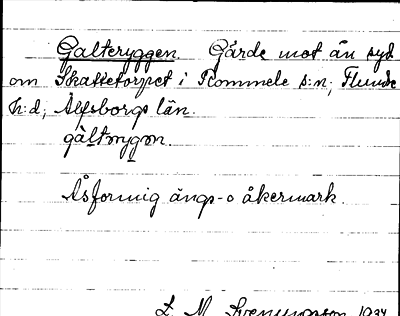 Galteryggen. Gärde mot ån syd
om Skattetorpet i Rommele s:n, Flundre
h:d, Älfsborgs län.
gàltrygɔn.
Åsformig ängs- o åkermark.
L. M. Svenungsson 1934